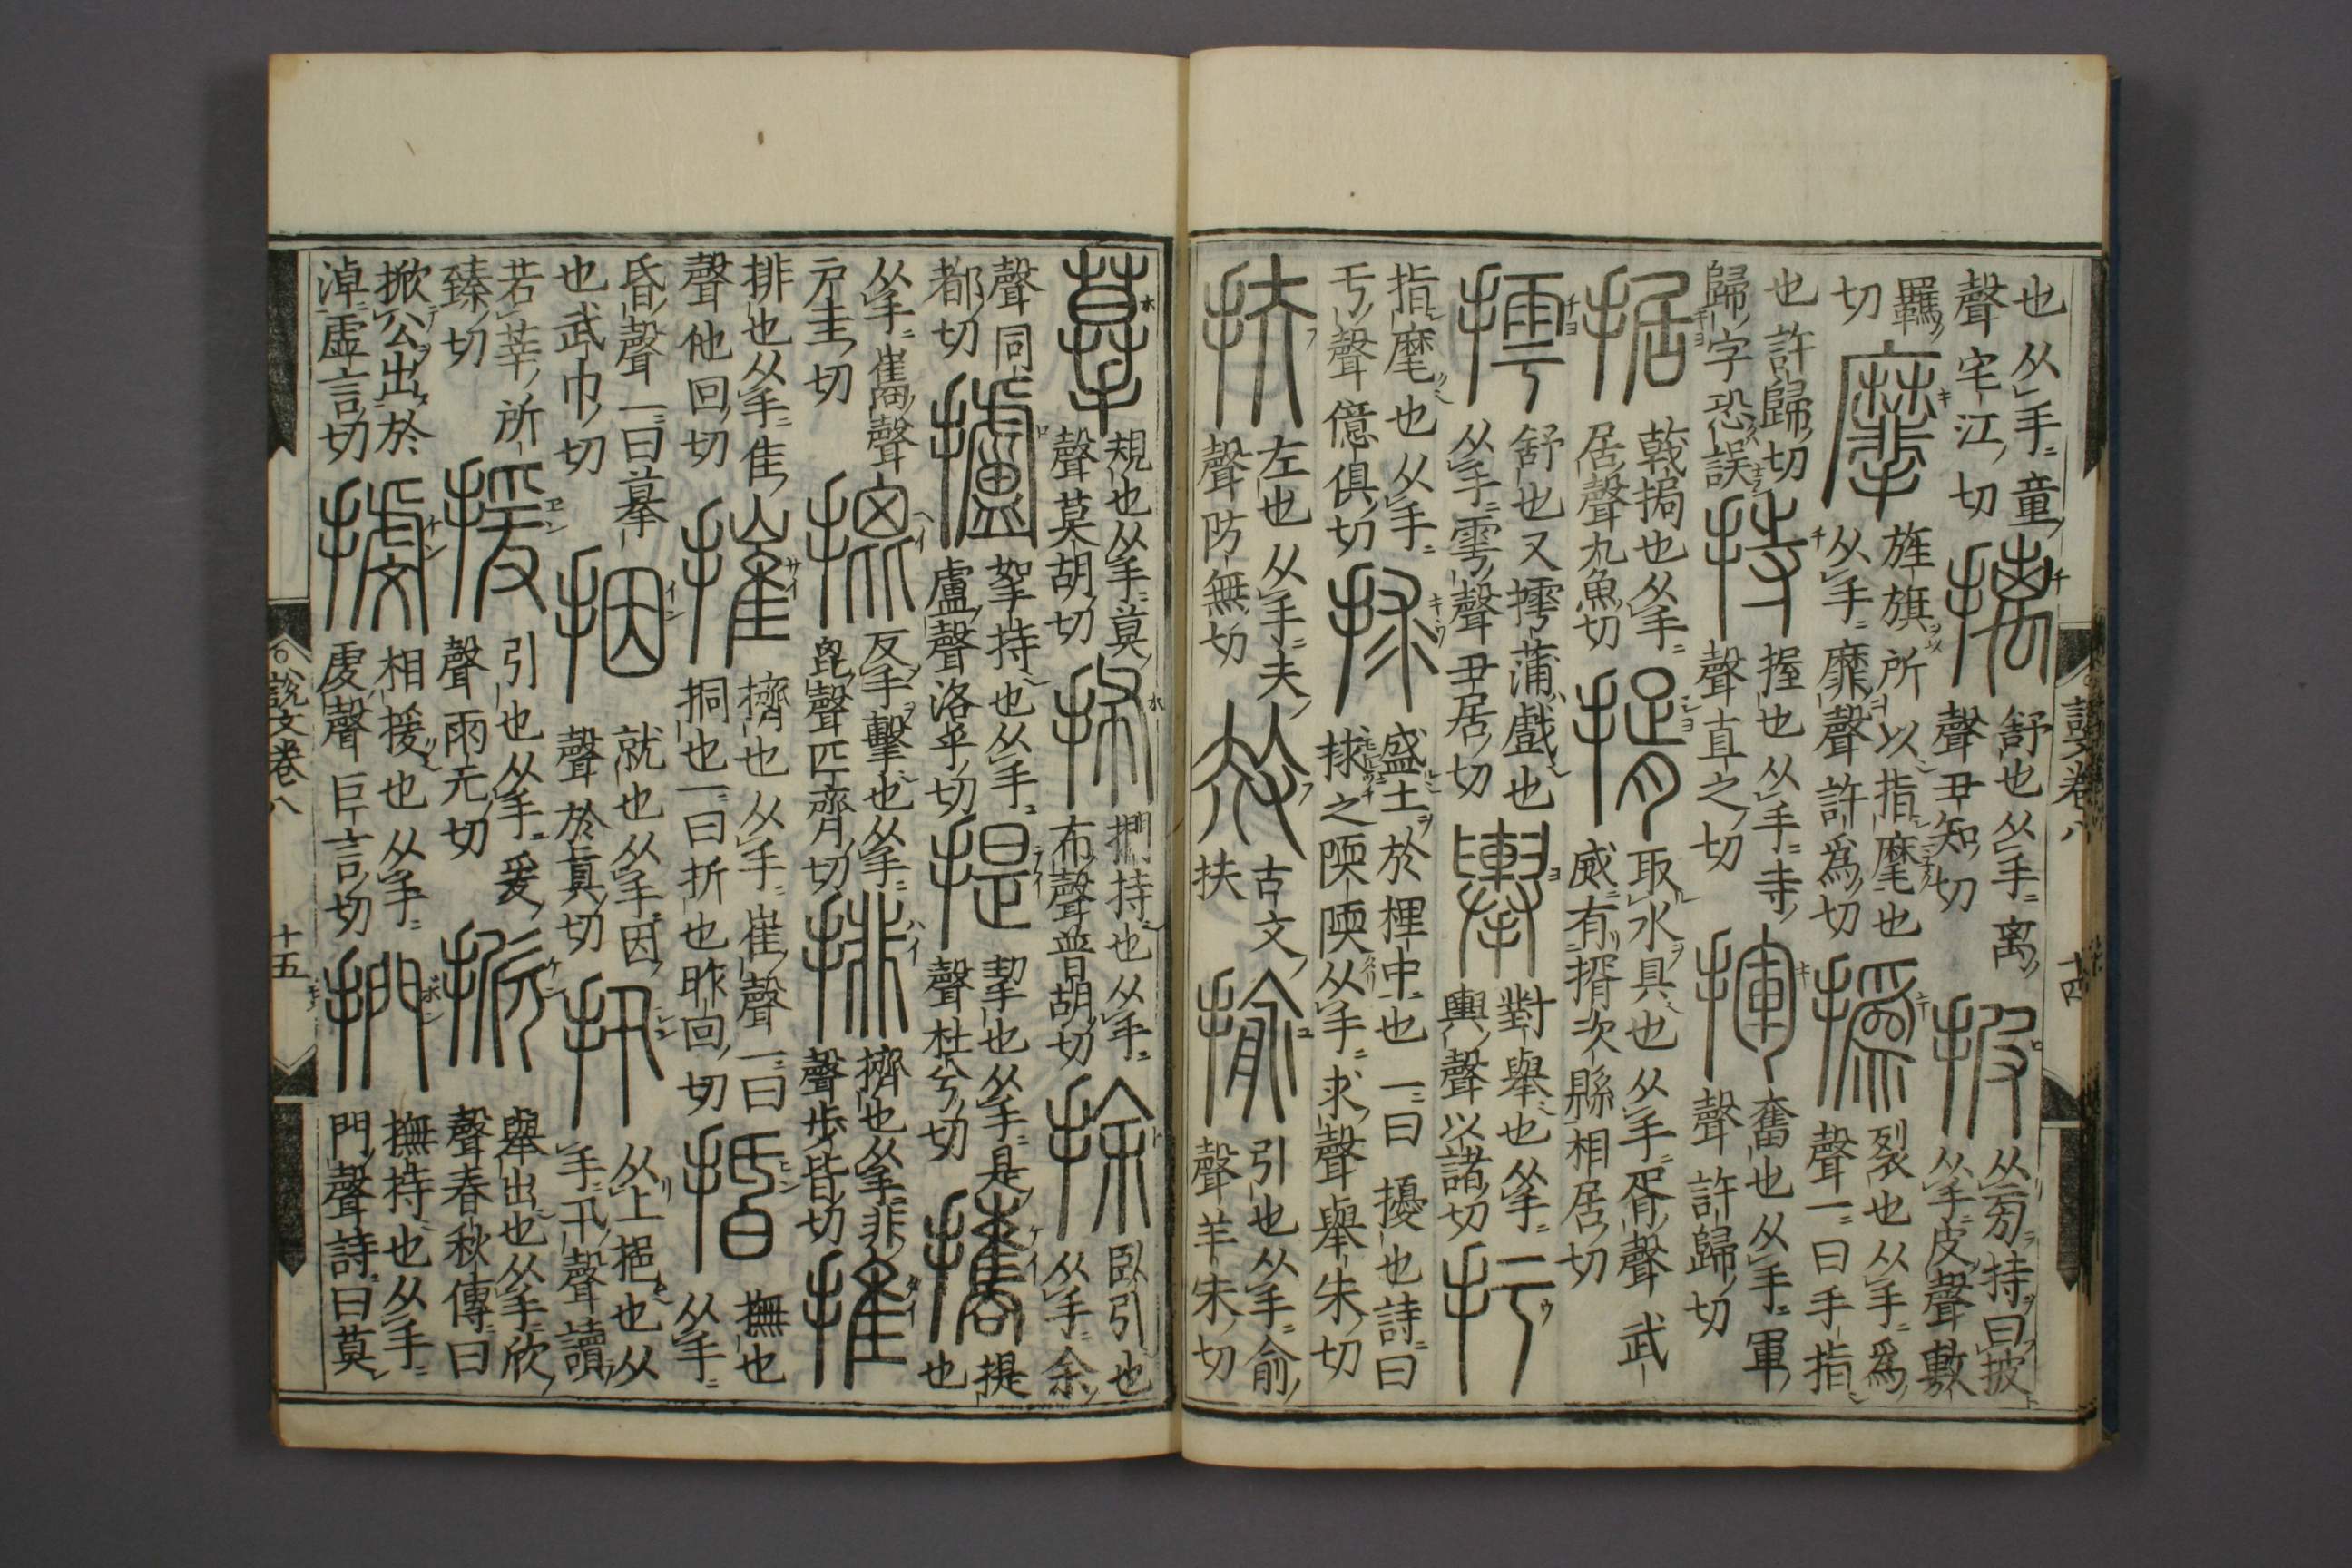 也从手童
聲宅江切
摛
舒也从手离
聲丑知切
披
从㫄持曰披
从手皮聲敷
羈
切
𢺀
旌旗所以指麾也
从手靡聲許爲切
撝
裂也从手爲
聲一曰手指
也許歸切
歸字恐誤
持
握也从手寺
聲直之切
揮
奮也从手軍
聲許歸切
据
戟挶也从手
居聲九魚切
揟
取水具也从手胥聲武
威有揟次縣相居切
摴
舒也又摴蒲戲也
从手雩聲丑居切
擧
對舉也从手
輿聲以諸切
扜
指麾也从手
亏聲億俱切
捄
盛土於梩中也一曰擾也詩曰
捄之陾陾从手求聲舉朱切
扶
左也从手夫
聲防無切
古文
扶
揄
引也从手俞
聲羊朱切
說文卷八
十四
摹
規也从手莫
聲莫胡切
抪
捫持也从手
布聲普胡切
捈
臥引也
从手余
聲同
都切
攎
挐持也从手
盧聲洛乎切
提
挈也从手是
聲杜兮切
攜
提
也
从手巂聲
戶圭切
㩢
反手擊也从手
𣬉聲匹齊切
排
擠也从手非
聲步皆切
推
排也从手隹
聲他回切
摧
擠也从手崔聲一曰
挏也一曰折也昨回切
捪
撫也
从手
昏聲一曰摹
也武巾切
捆
就也从手因
聲於真切
扟
从上挹也从
手卂聲讀
若莘所
臻切
援
引也从手爰
聲雨元切
掀
舉出也从手欣
聲春秋傳曰
掀公出於
淖虛言切
揵
相援也从手
虔聲巨言切
捫
撫持也从手
門聲詩曰莫
說文卷八
十五